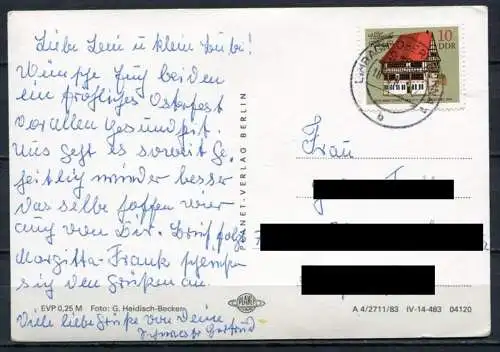 Liebe Leni u klein Bubi!
Wünsche Euch beiden
ein fröhliches Osterfest
vor allen Gesundheit.
Uns geht es soweit Ge-
heitlich wieder besser
das selbe hoffen wir
auch von Dir. Brief folgt
Margitta - Frank schließen
sich den Grüßen an.
Viele liebe Grüße von Deine
Schwester Gertrud
EVP 0,25 M Foto: G. Heidisch-Beckers
PLANET-VERLAG BERLIN
PLANET
10
DDR
Frau
A 4/2711/83 IV-14-483 04120